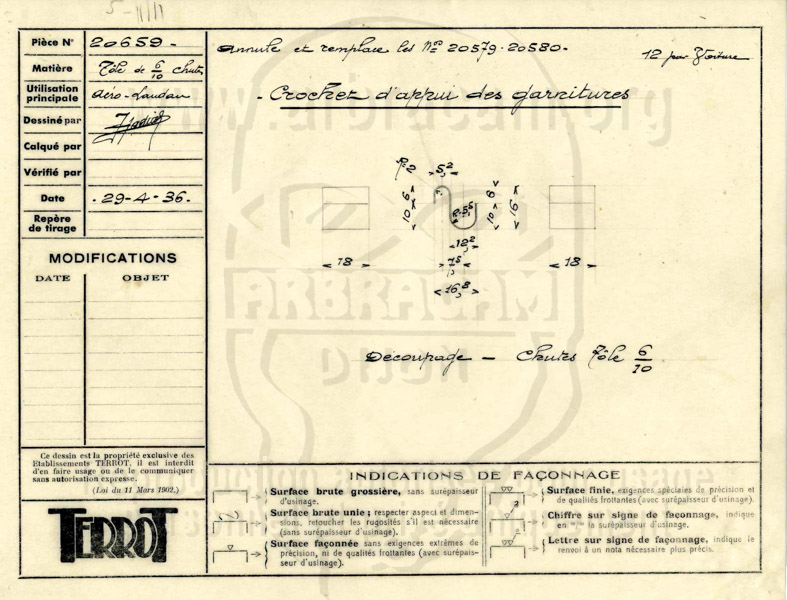 Pièce N° 20659.
Matière Tôle de 6/10 chutes
Utilisation principale Aéro-Landau
Dessiné par
Calqué par
Vérifié par
Date .29-4-36.
Repère de tirage
MODIFICATIONS
DATE OBJET
Ce dessin est la propriété exclusive des
Etablissements TERROT, il est interdit
d'en faire usage ou de le communiquer
sans autorisation expresse.
(Loi du 11 Mars 1902.)
TERROT
Annule et remplace les Nos 20579.20580.
12 par Voiture
- Crochet d'appui des garnitures
R=2 5,2
6 10
8 10 16
12,2
7,5
16,8
18 18
Découpage - Chutes Tôle 6/10
INDICATIONS DE FAÇONNAGE
Surface brute grossière, sans surépaisseur
d'usinage.
Surface brute unie; respecter aspect et dimen-
sions, retoucher les rugosités s'il est nécessaire
(sans surépaisseur d'usinage).
Surface façonnée sans exigences extrêmes de
précision, ni de qualités frottantes (avec surépais-
seur d'usinage).
Surface finie, exigences spéciales de précision et
de qualités frottantes (avec surépaisseur d'usinage).
Chiffre sur signe de façonnage, indique
en la surépaisseur d'usinage.
Lettre sur signe de façonnage, indique le
renvoi à un nota nécessaire plus précis.
www.arbracam.org
ARBRACAM